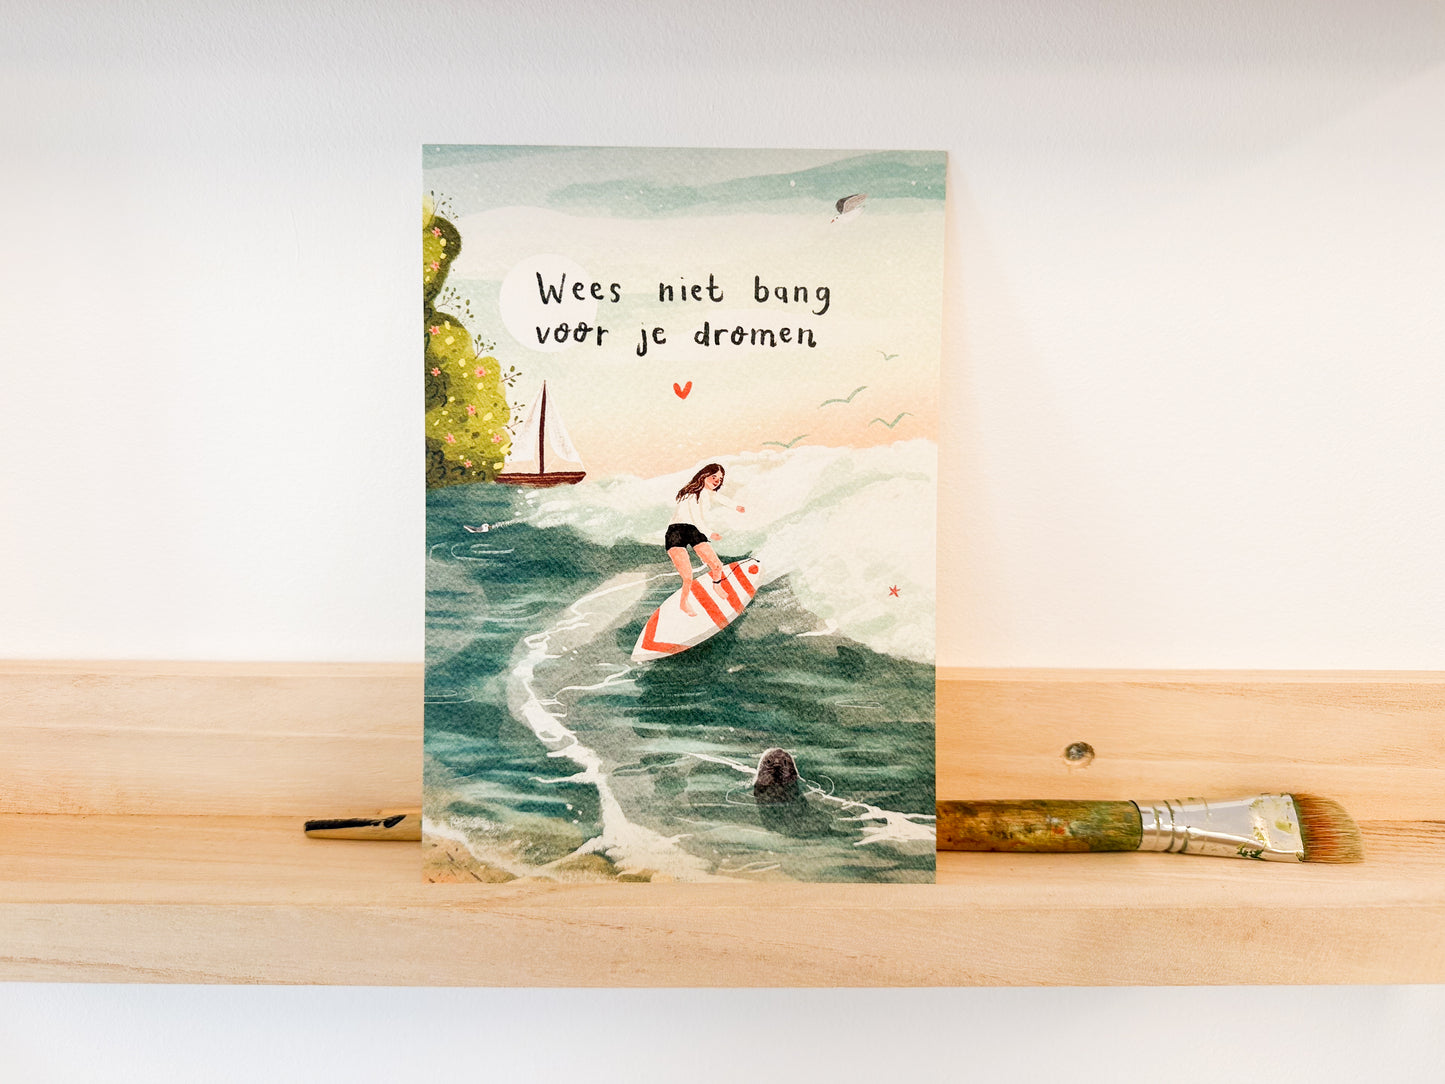 Wees niet bang
voor je dromen